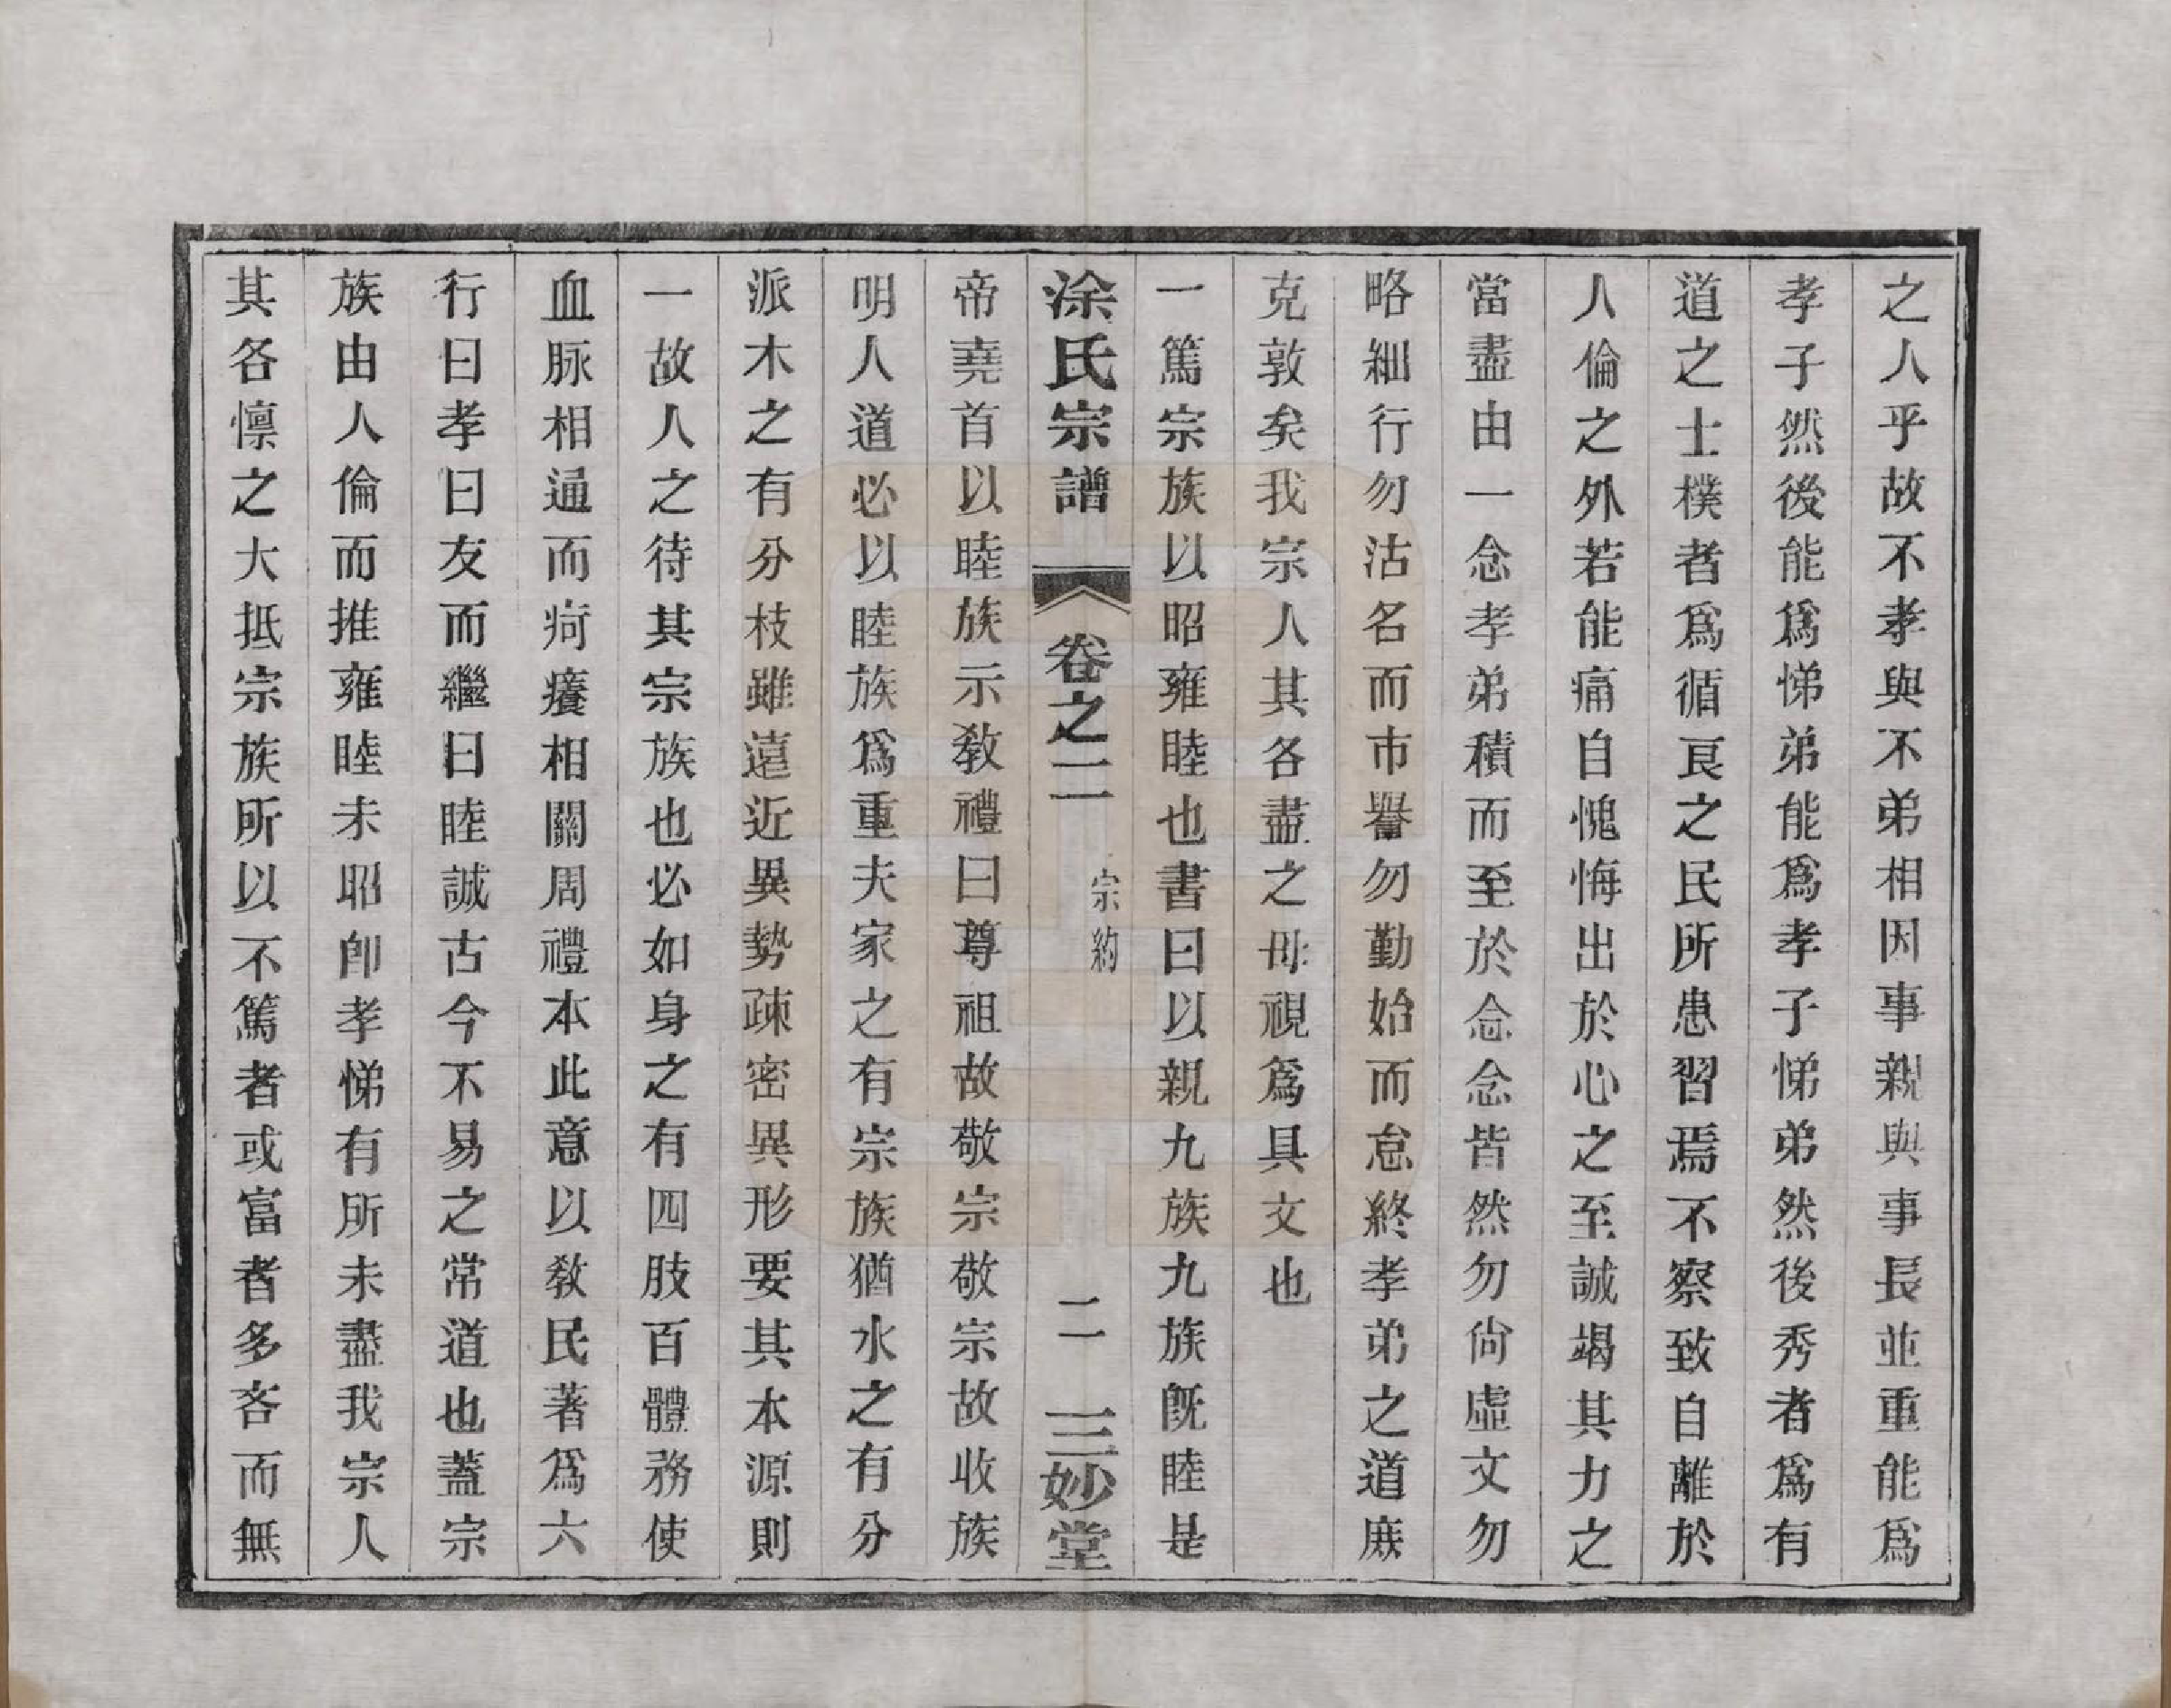 之人乎故不孝與不弟相因事親與事長並重能爲
孝子然後能爲悌弟能爲孝子悌弟然後秀者爲有
道之士樸者爲循良之民所患習焉不察致自離於
人倫之外若能痛自愧悔出於心之至誠竭其力之
當盡由一念孝弟積而至於念念皆然勿尚虛文勿
略細行勿沽名而市譽勿勤始而怠終孝弟之道庶
克敦矣我宗人其各盡之毋視爲具文也
一篤宗族以昭雍睦也書曰以親九族九族旣睦是
涂氏宗譜
卷之二
宗約
二
三妙堂
帝堯首以睦族示敎禮曰尊祖故敬宗敬宗故收族
明人道必以睦族爲重夫家之有宗族猶水之有分
派木之有分枝雖遠近異勢疎密異形要其本源則
一故人之待其宗族也必如身之有四肢百體務使
血脉相通而疴癢相關周禮本此意以敎民著爲六
行曰孝曰友而繼曰睦誠古今不易之常道也蓋宗
族由人倫而推雍睦未昭卽孝悌有所未盡我宗人
其各懔之大抵宗族所以不篤者或富者多吝而無